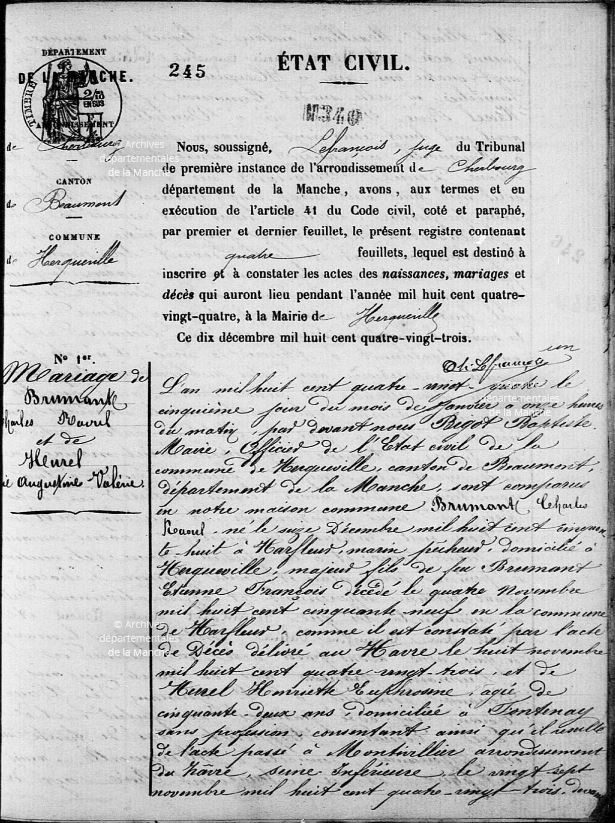 DÉPARTEMENT
DE LA MANCHE.
TIMBRE
2/10
EN SUS
245
ÉTAT CIVIL.
M340
de
CANTON
de Beaumont
COMMUNE
de Herqueville
Nous, soussigné, Lefrançois, juge du Tribunal
de première instance de l'arrondissement de Cherbourg
département de la Manche, avons, aux termes et en
exécution de l'article 41 du Code civil, coté et paraphé,
par premier et dernier feuillet, le présent registre contenant
quatre feuillets, lequel est destiné à
inscrire et à constater les actes des naissances, mariages et
décès qui auront lieu pendant l'année mil huit cent quatre-
vingt-quatre, à la Mairie de Herqueville
Ce dix décembre mil huit cent quatre-vingt-trois.
un
Lefrançois
N° 1er.
Mariage de
Brumant
Charles Raoul
et de
Heurel
Augustine Valérie.
L'an mil huit cent quatre-vingt-quatre le
cinquième jour du mois de Janvier à onze heures
du matin, par devant nous Begot Baptiste
Maire, Officier de l'Etat civil de la
commune de Herqueville, canton de Beaumont,
département de la Manche, sont comparus
en notre maison commune Brumant Charles
Raoul, né le seize Décembre mil huit cent cinquan
te huit à Harfleur, marin pêcheur, domicilié à
Herqueville, majeur, fils de feu Brumant
Etienne François décédé le quatre Novembre
mil huit cent cinquante neuf, en la commune
de Harfleur, comme il est constaté par l'acte
de Décès délivré au Havre le huit novembre
mil huit cent quatre-vingt trois, et de
Heurel Henriette Euphrosine, agée de
cinquante-deux ans, domiciliée à Fontenay
sans profession, consentant ainsi qu'il résulte
de l'acte passé à Montivillier arrondissement
du hâvre, seine Inférieure, le vingt sept
novembre mil huit cent quatre-vingt-trois, devan
© Archives
départementales
de la Manche
© Archives
départementales
de la Manche
© Archives
départementales
de la Manche